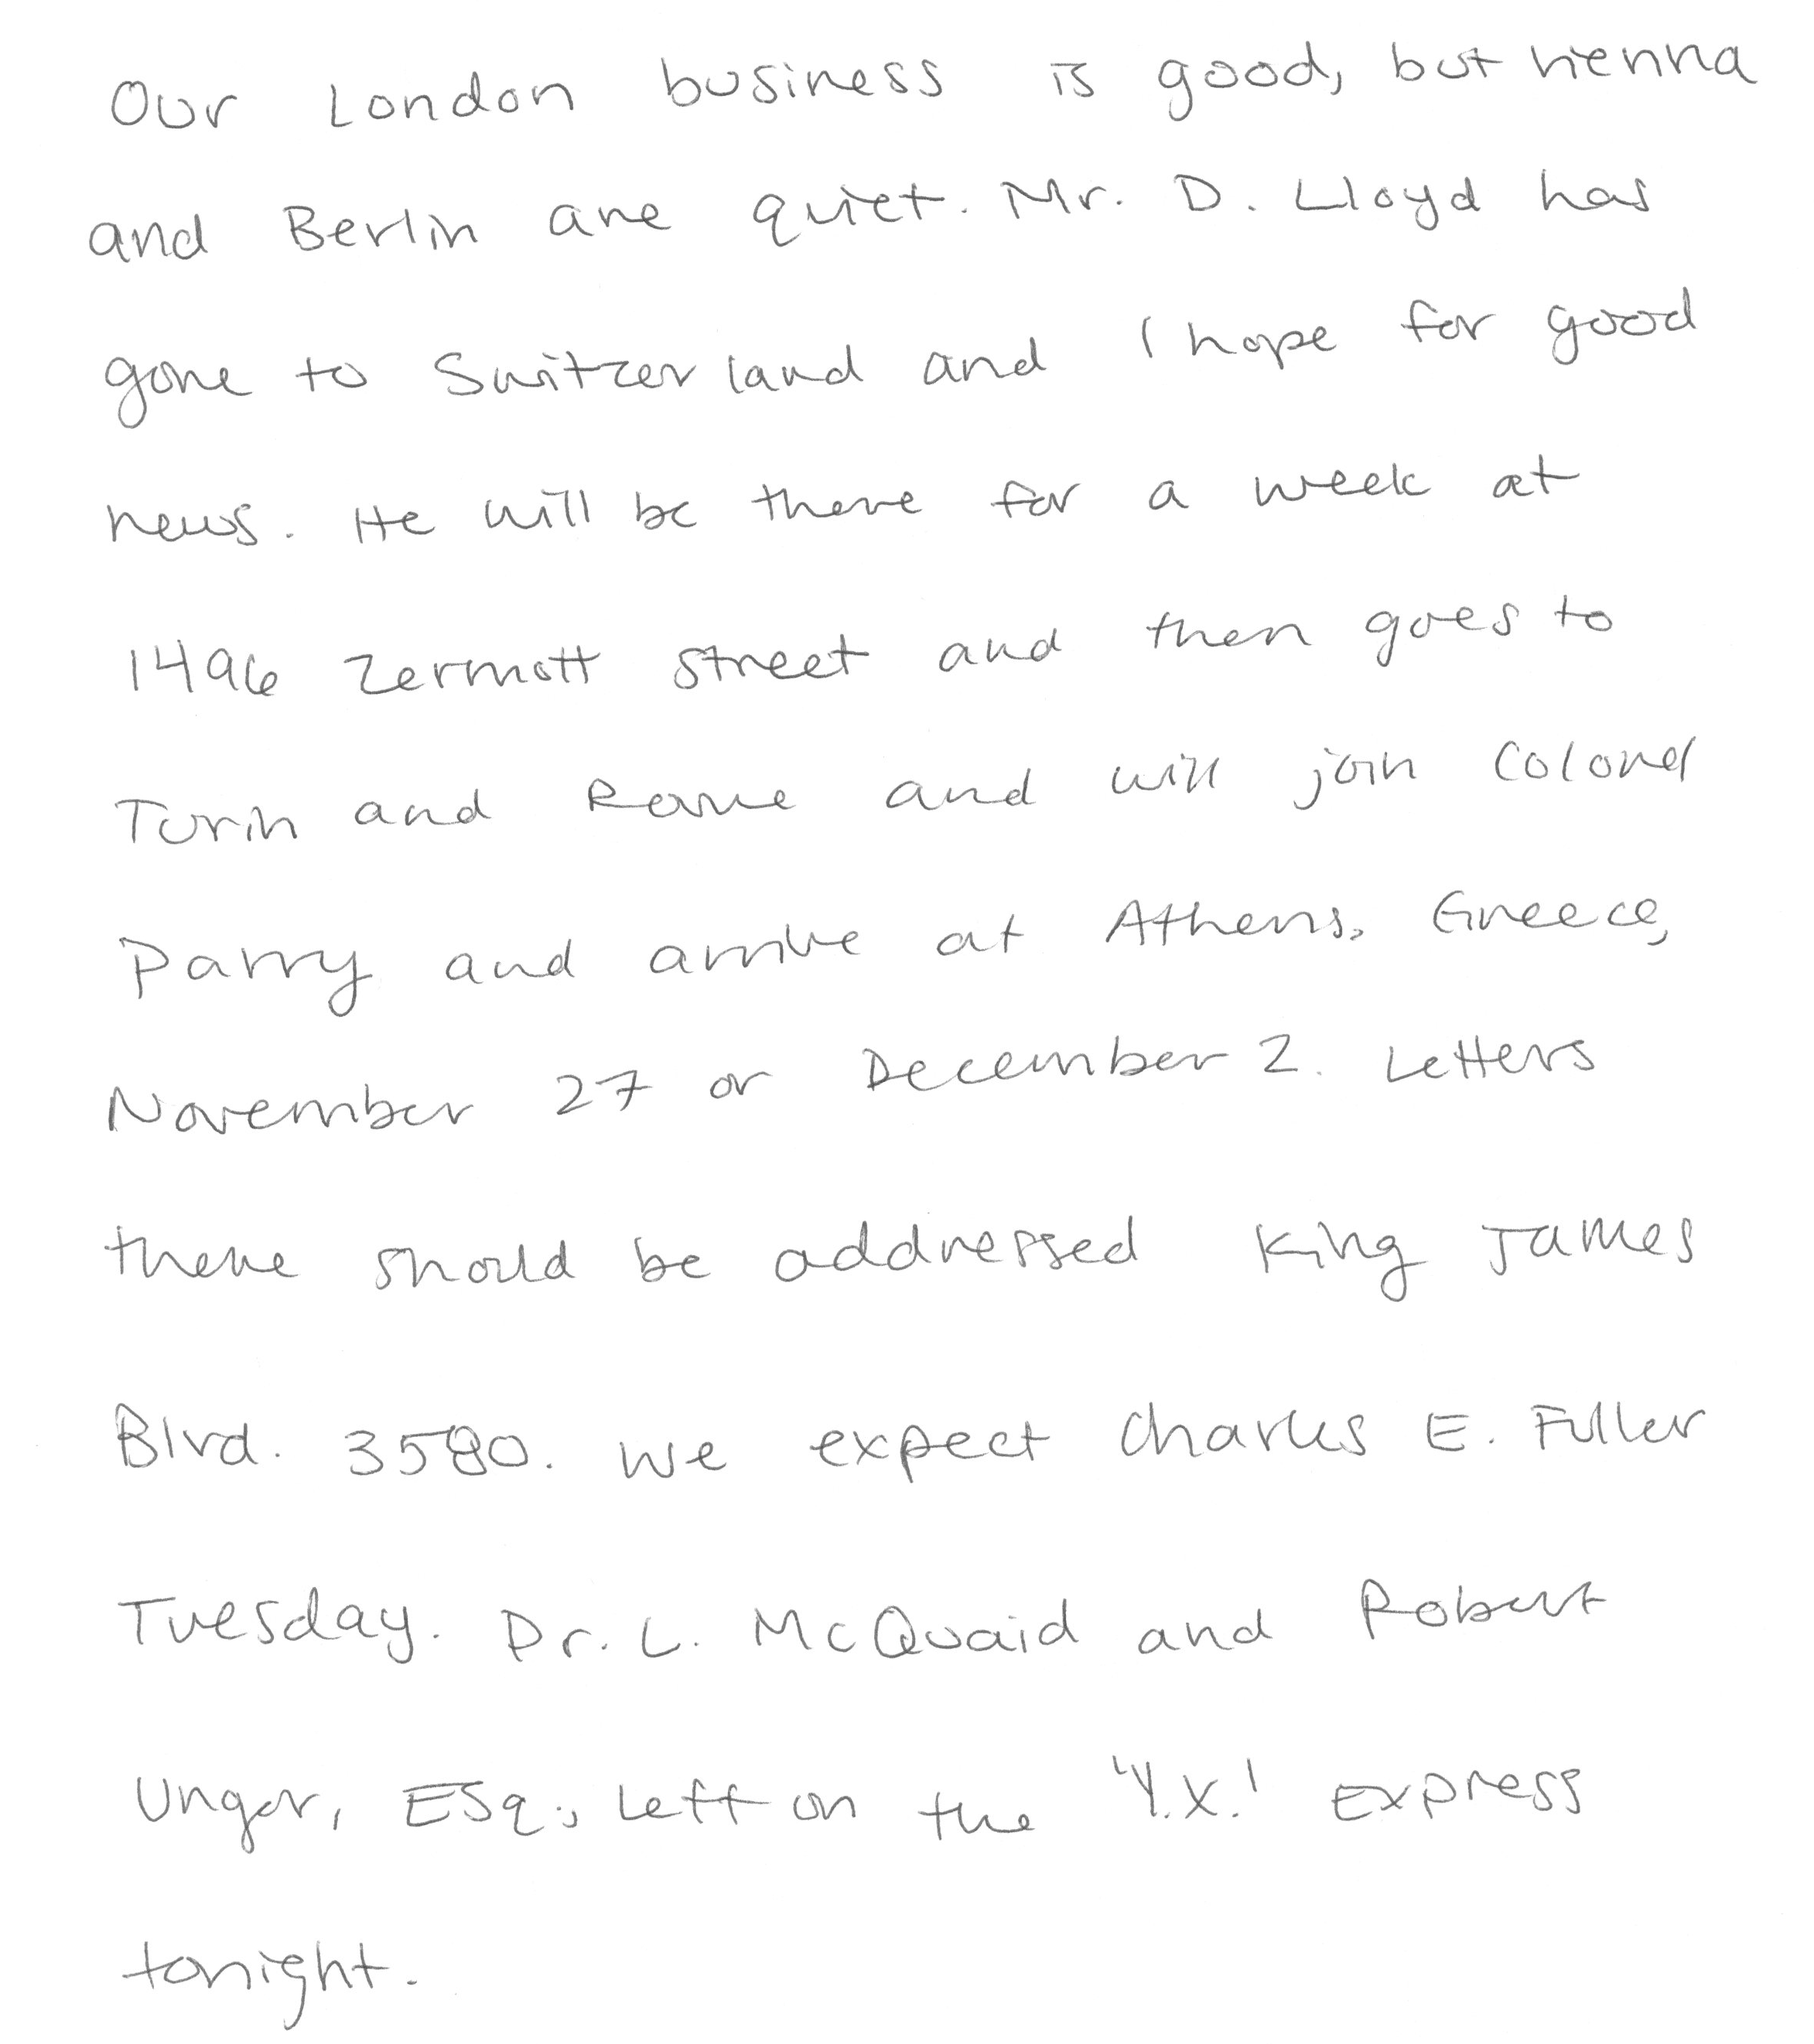 Our London business is good, but Vienna
and Berlin are quiet. Mr. D. Lloyd has
gone to Switzerland and I hope for good
news. He will be there for a week at
1496 Zermott street and then goes to
Turin and Rome and will join Colonel
Parry and arrive at Athens, Greece,
November 27 or December 2. Letters
there should be addressed King James
Blvd. 3580. We expect Charles E. Fuller
Tuesday. Dr. L. McQuaid and Robert
Unger, Esq., left on the 'Y.X.' Express
tonight.